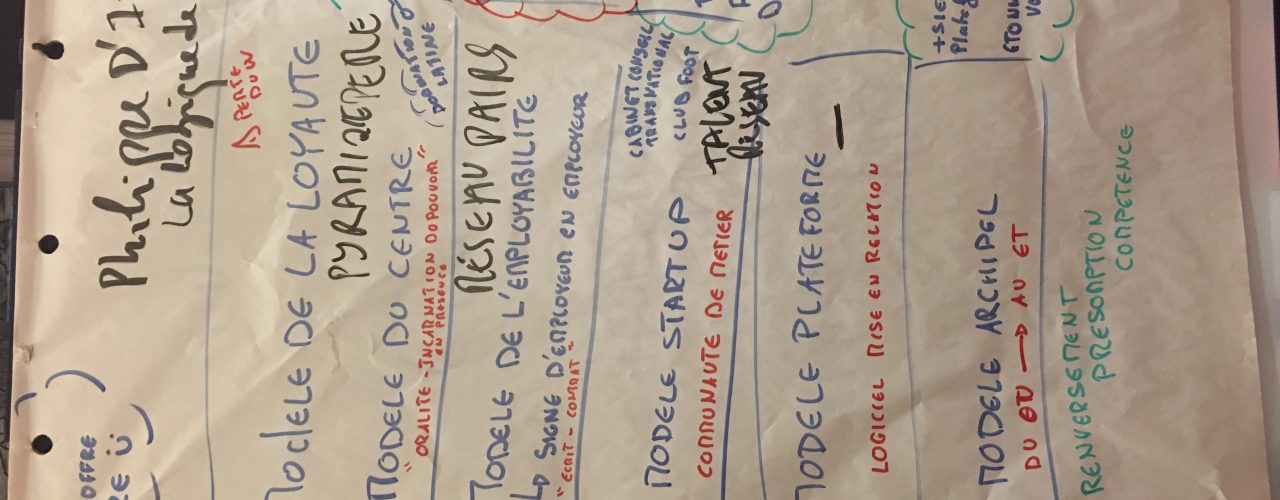 OFFRE
Philippe D'I
La Logique de
PERTE
DU LN
MODELE DE LA LOYAUTE
PYRAMIDE PERE
MODELE DU CENTRE
LATINE
"ORALITE - INCARNATION DU POUVOIR"
EN PRESENCE
RÉSEAU PAIRS
MODELE DE L'EMPLOYABILITE
SIGNE D'EMPLOYEUR EN EMPLOYEUR
"ECRIT - CONTRAT"
CABINET CONSEIL
TRANSNATIONAL
CLUB FOOT
MODELE STARTUP
TALENT
RÉSEAU
COMMUNAUTE DE METIER
MODELE PLATEFORME
LOGICIEL MISE EN RELATION
MODELE ARCHIPEL
DU OU → AU ET
RENVERSEMENT
PRESOMPTION
COMPETENCE